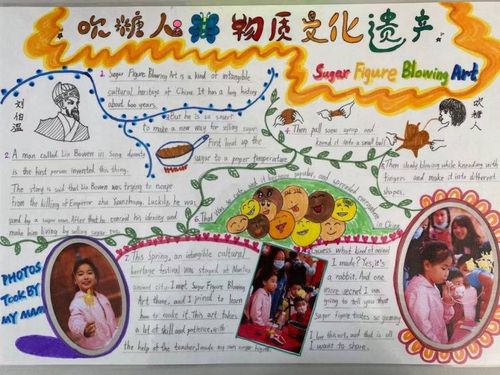 吹糖人 物质文化遗产
Sugar Figure Blowing Art
1. Sugar Figure Blowing Art is a kind of intangible
cultural heritage of China. It has a long history
about 600 years.
刘伯温
But he is so smart
to make a new way for selling sugar.
First heat up the
sugar to a proper temperature
4. Then pull some syrup and
knead it into a small ball
吹糖人
2. A man called Liu Bowen in Song dynasty
is the first person invented this thing.
The story is said that Liu Bowen was trying to escape
from the killing of Emperor Zhu Yuanzhang. Luckily, he was
by a sugar man. After that he conceal his identity and
make him living by selling sugar
5. Then slowly blowing while kneading with
fingers and make it into different
shapes.
6. That
and it became popular, and
in China
PHOTOS
TOOK BY
MY MAM
7. This Spring, an intangible cultural
heritage festival was stayed at
ancient city. I met Sugar Figure Blowing
Art there, and I joined to learn
how to make it. This art takes
a lot of skill and patience, with
the help of the teacher, I made my own sugar figure.
Guess what kind of animal
I made? Yes, it's
a rabbit. And one
more secret I am
going to tell you that
sugar figure tastes so yummy
I love this art, and that is all
I want to share.